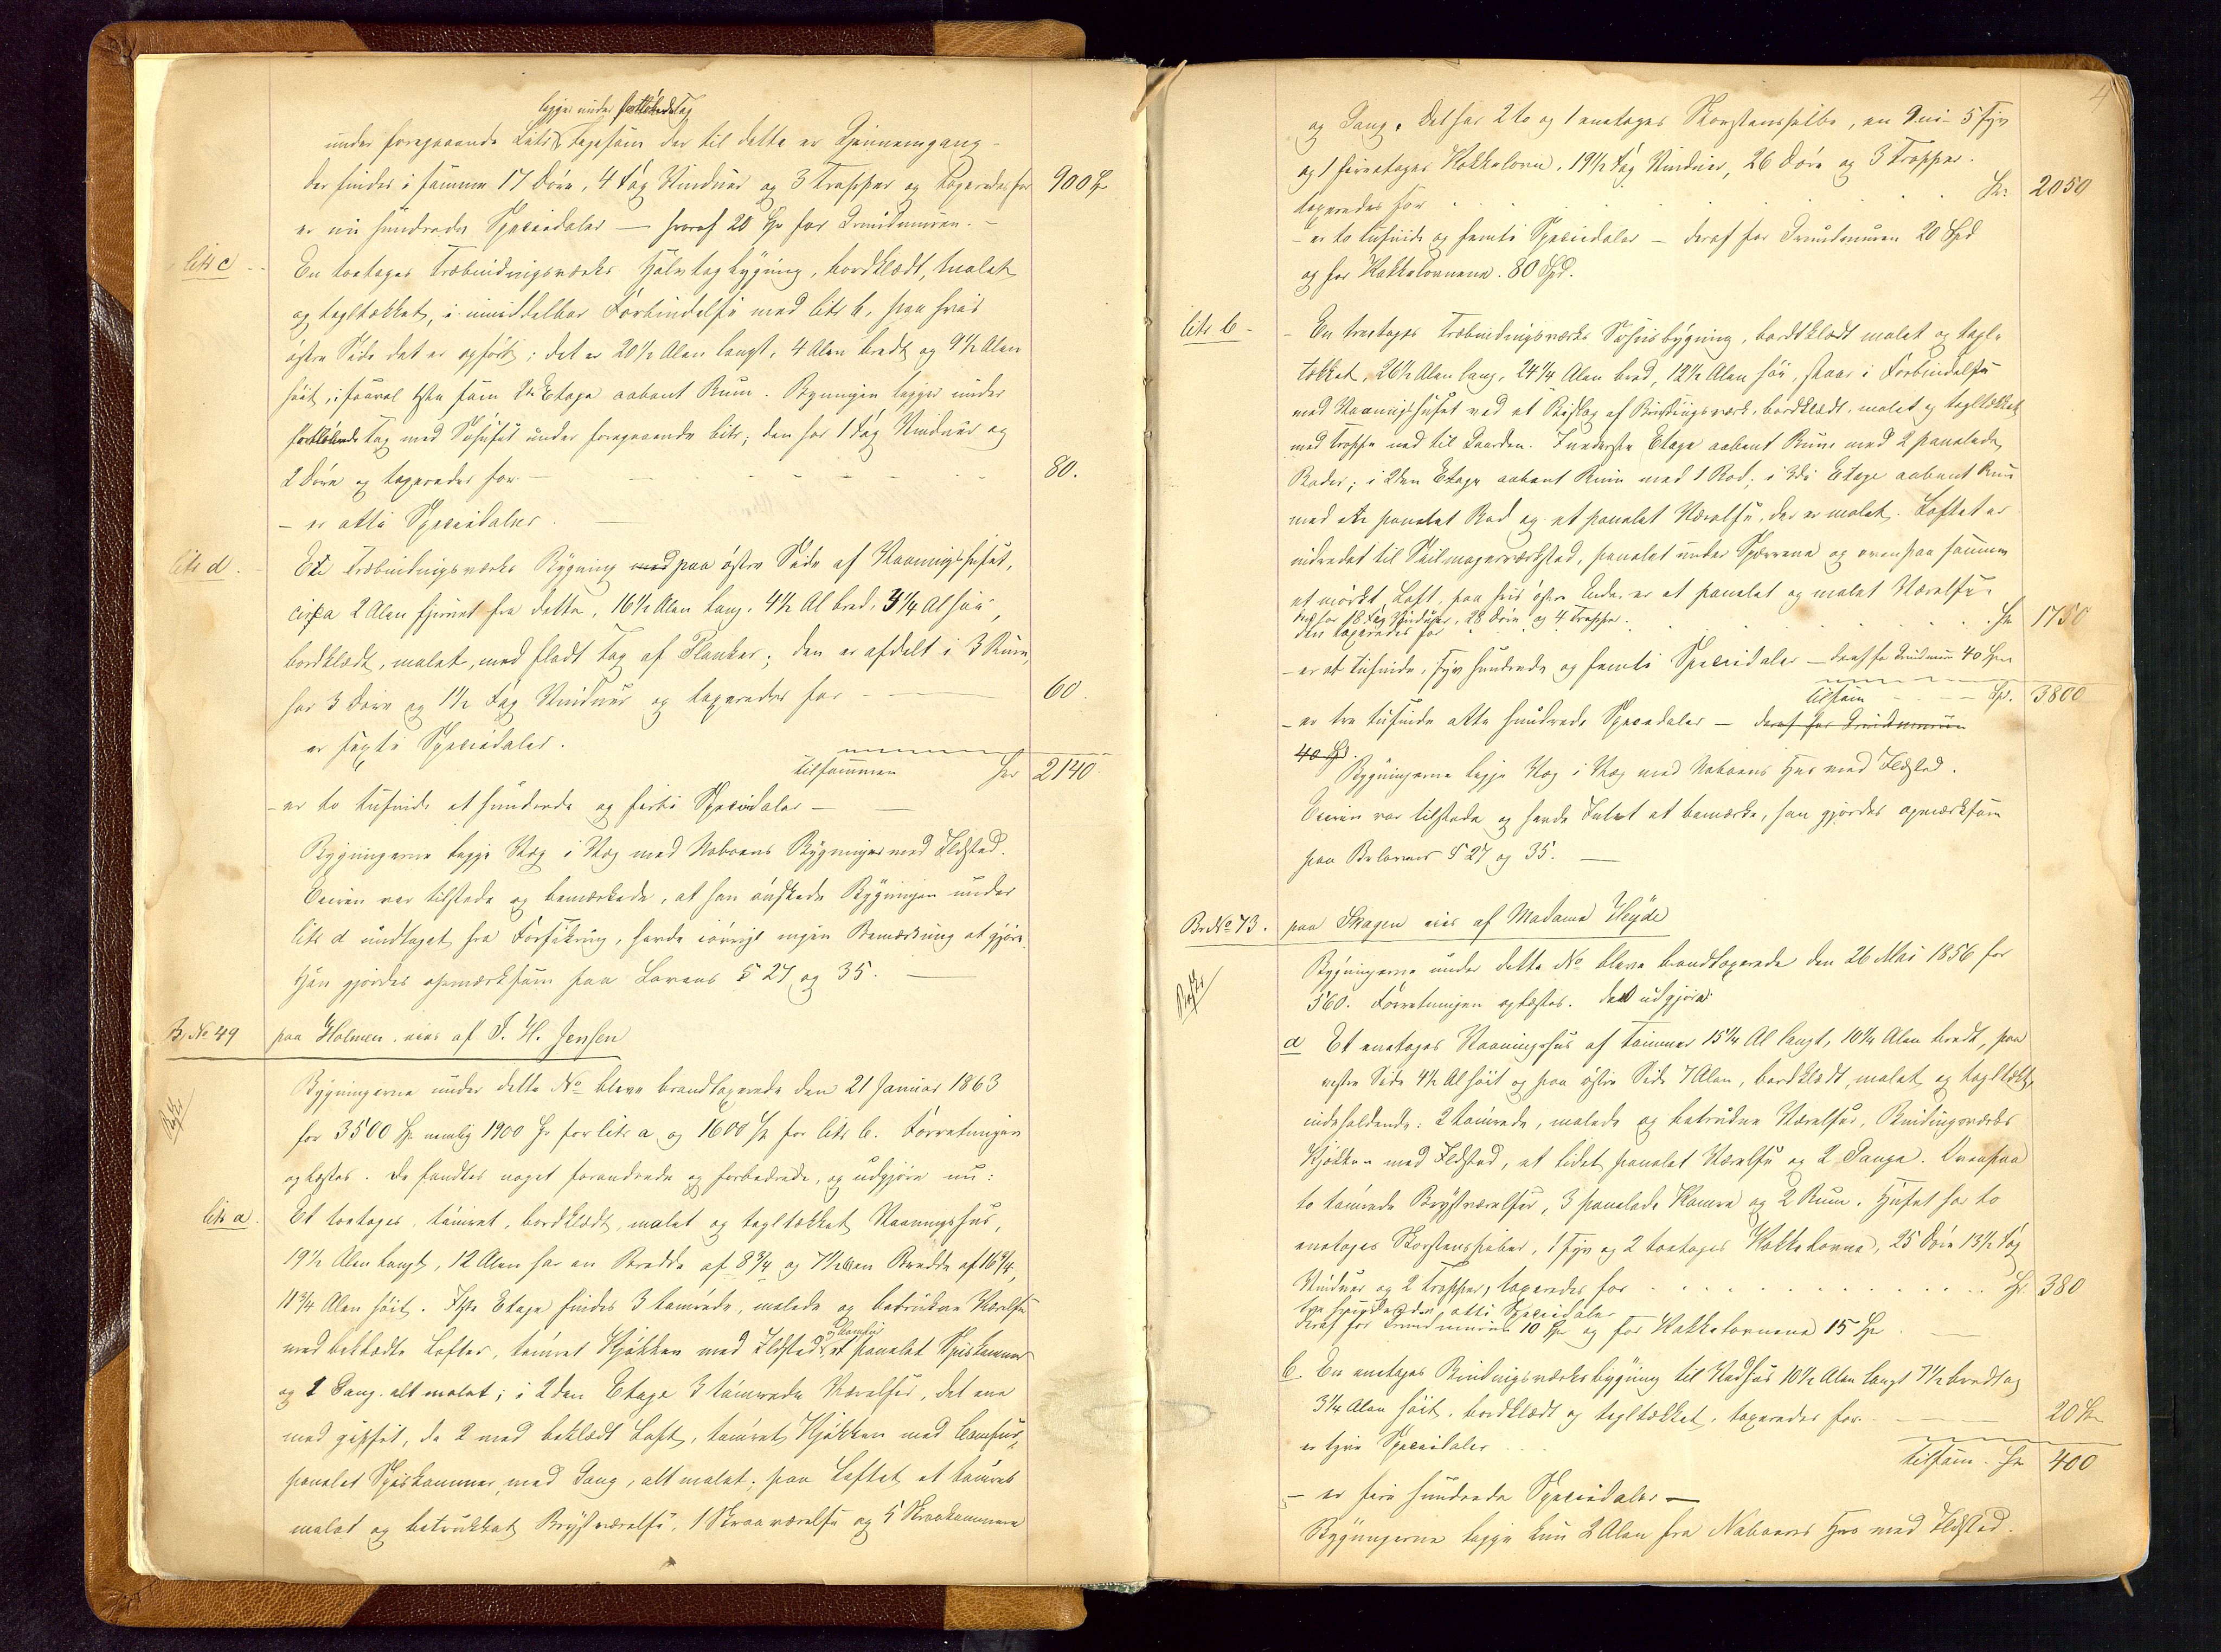 ligger under fortløbende Tag
under foregaaende Litr. ligesom der til dette er Gjennemgang –
der findes i samme 17 Døre, 4 Fag Vinduer og 3 Trapper og taxeredes for 900 Spd
er ni hundrede Speciedaler – hvoraf 20 Spd for Grundmuren. –
litr c En toetages Træbindingsværks Halvtagbygning, bordklædt, malet
og tegltækket, i umiddelbar Forbindelse med litr b, paa hvis
østre Side det er opført; det er 20 1/2 Alen langt, 4 Alen bredt og 9 1/2 Alen
høit, i saavel 1ste som 2den Etage aabent Rum. Bygningen ligger under
fortløbende Tag med Søhuset under foregaaende litr; den har 1 Fag Vinduer og
2 Døre og taxeredes for – 80.
– er otti Speciedaler.
litr d. En Træbindingsværks Bygning med paa østre Side af Vaaningshuset,
circa 2 Alen fjernet fra dette, 16 1/2 Alen lang, 4 1/2 Al bred, 3 1/4 Al høi,
bordklædt, malet, med fladt Tag af Planker; den er afdelt i 3 Rum,
har 3 Døre og 1 1/2 Fag Vinduer og taxeredes for – 60.
er sexti Speciedaler.
tilsammen Spd 2140
– er to tusinde et hundrede og førti Speciedaler –
Bygningerne ligge Væg i Væg med Naboens Bygninger med Ildsted.
Eieren var tilstede og bemærkede, at han ønskede Bygningen under
litr d undtaget fra Forsikring, havde iøvrigt ingen Bemærkning at gjøre.
Han gjordes opmærksom paa Lovens § 27 og 35. –
B. No 49 paa Holmen eies af J. H. Jensen
Bygningerne under dette No bleve brandtaxerede den 21 Januar 1863
for 3500 Spd nemlig 1900 Spd for litr a og 1600 Spd for litr b. Forretningen
oplæstes. De fandtes noget forandrede og forbedrede, og udgjøre nu:
litr a. Et toetages, tømret, bordklædt, malet og tegltækket Vaaningshus,
19 1/2 Alen langt, 12 Alen har en Bredde af 8 3/4 og 7 1/2 en Bredde af 16 3/4,
11 3/4 Alen høit. I 1ste Etage findes 3 tømrede, malede og betrukne Værelser
med beklædte Lofter, tømret Kjøkken med Ildsted og Komfur, et panelet Spiskammer
og 1 Gang, alt malet; i 2den Etage 3 tømrede Værelser, det ene
med gipset, de 2 med beklædt Loft, tømret Kjøkken med Comfur,
panelet Spiskammer, med Gang, alt malet; paa Loftet et tømret
malet og betrukket Brystværelse, 1 Skraaværelse og 5 Skraakammere
4
og Gang. Det har 2 to og 1 enetages Skorstenspibe, en Grue 5 Fyr
og 1 fireetages Kakkelovn, 19 1/2 Fag Vinduer, 26 Døre og 3 Trapper.
taxeredes for Spd. 2050
– er to tusinde og femti Speciedaler – deraf for Grundmuren 20 Spd
og for Kakkelovnene. 80 Spd.
litr b – En treetages Træbindingsværks Søhusbygning, bordklædt malet og tegl-
tækket, 26 1/2 Alen lang, 24 1/4 Alen bred, 12 1/2 Alen høi, staar i Forbindelse
med Vaaningshuset ved et Bislag af Bindingsværk, bordklædt, malet og tegltækket
med Trappe ned til Gaarden. I nederste Etage aabent Rum med 2 panelede
Boder; i 2den Etage aabent Rum med 1 Bod; i 3die Etage aabent Rum
med en panelet Bod og et panelet Værelse, der er malet. Loftet er
indredet til Seilmagerværksted, panelet under Sperrene og ovenpaa sammen
et mørkt Loft, paa hvis østre Ende er et panelet og malet Værelse.
Det har 18 Fag Vinduer, 28 Døre og 4 Trapper.
den taxeredes for Spd 1750
– er et tusinde, syv hundrede og femti Speciedaler – deraf for Grundmur 40 Spd
tilsam Spd. 3800
– er tre tusinde otte hundrede Speciedaler – deraf for Grundmuren
40 Spd.
Bygningerne ligge Væg i Væg med Naboens Hus med Ildsted.
Eieren var tilstede og havde Intet at bemærke, han gjordes opmærksom
paa Br.lovens § 27 og 35. –
Br. No 73. paa Skagen eies af Madame Heyde
Bygningerne under dette No bleve brandtaxerede den 26 Mai 1856 for
560. Forretningen oplæstes. Det udgjør:
a Et enetages Vaaningshus af Tømmer 15 1/4 Al langt, 10 1/4 Alen bredt, paa
vestre Side 4 1/2 Al høit og paa østre Side 7 Alen, bordklædt, malet og tegltækket,
indeholdende: 2 tømrede, malede og betrukne Værelser, Bindingsværks
Kjøkken med Ildsted, et lidet panelet Værelse og 2 Gange. Ovenpaa
to tømrede Brystværelser, 3 panelede Kamre og 2 Rum. Huset har to
enetages Skorstenspiber, 1 Fyr og 2 toetages Kakkelovne, 25 Døre 13 1/2 Fag
Vinduer og 2 Trapper, taxeredes for Spd 380
tre hundrede otti Speciedaler
deraf for Grundmuren 10 Spd og for Kakkelovnene 15 Spd.
b. En enetages Bindingsværksbygning til Vedhus 10 1/2 Alen langt 7 1/2 bredt og
3 1/4 Alen høit, bordklædt og tegltækket, taxeredes for – 20 Spd
er tyve Speciedaler
tilsam. Spd 400
– er fire hundrede Speciedaler –
Bygningerne ligge kun 2 Alen fra Naboens Hus med Ildsted.